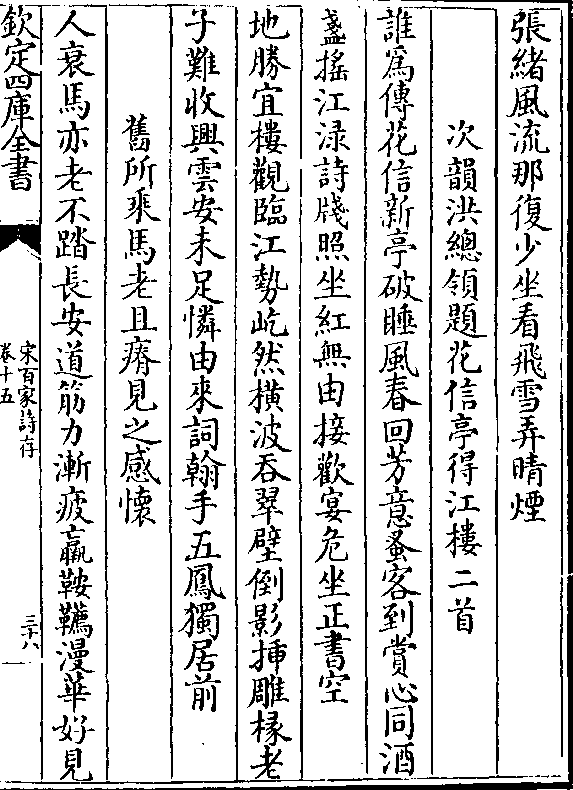 張緒風流那復少坐看飛雪弄晴煙
次韻洪總領題花信亭得江樓二首
誰為傳花信新亭破睡風春回芳意蚤客到賞心同酒
盞搖江淥詩牋照坐紅無由接歡宴危坐正書空
地勝宜樓觀臨江勢屹然橫波吞翠壁倒影挿雕椽老
子難收興雲安未足憐由來詞翰手五鳳獨居前
舊所乘馬老且瘠見之感懷
人衰馬亦老不踏長安道筋力漸疲羸鞍韉漫華好見
欽定四庫全書
宋百家詩存
卷十五
三十八